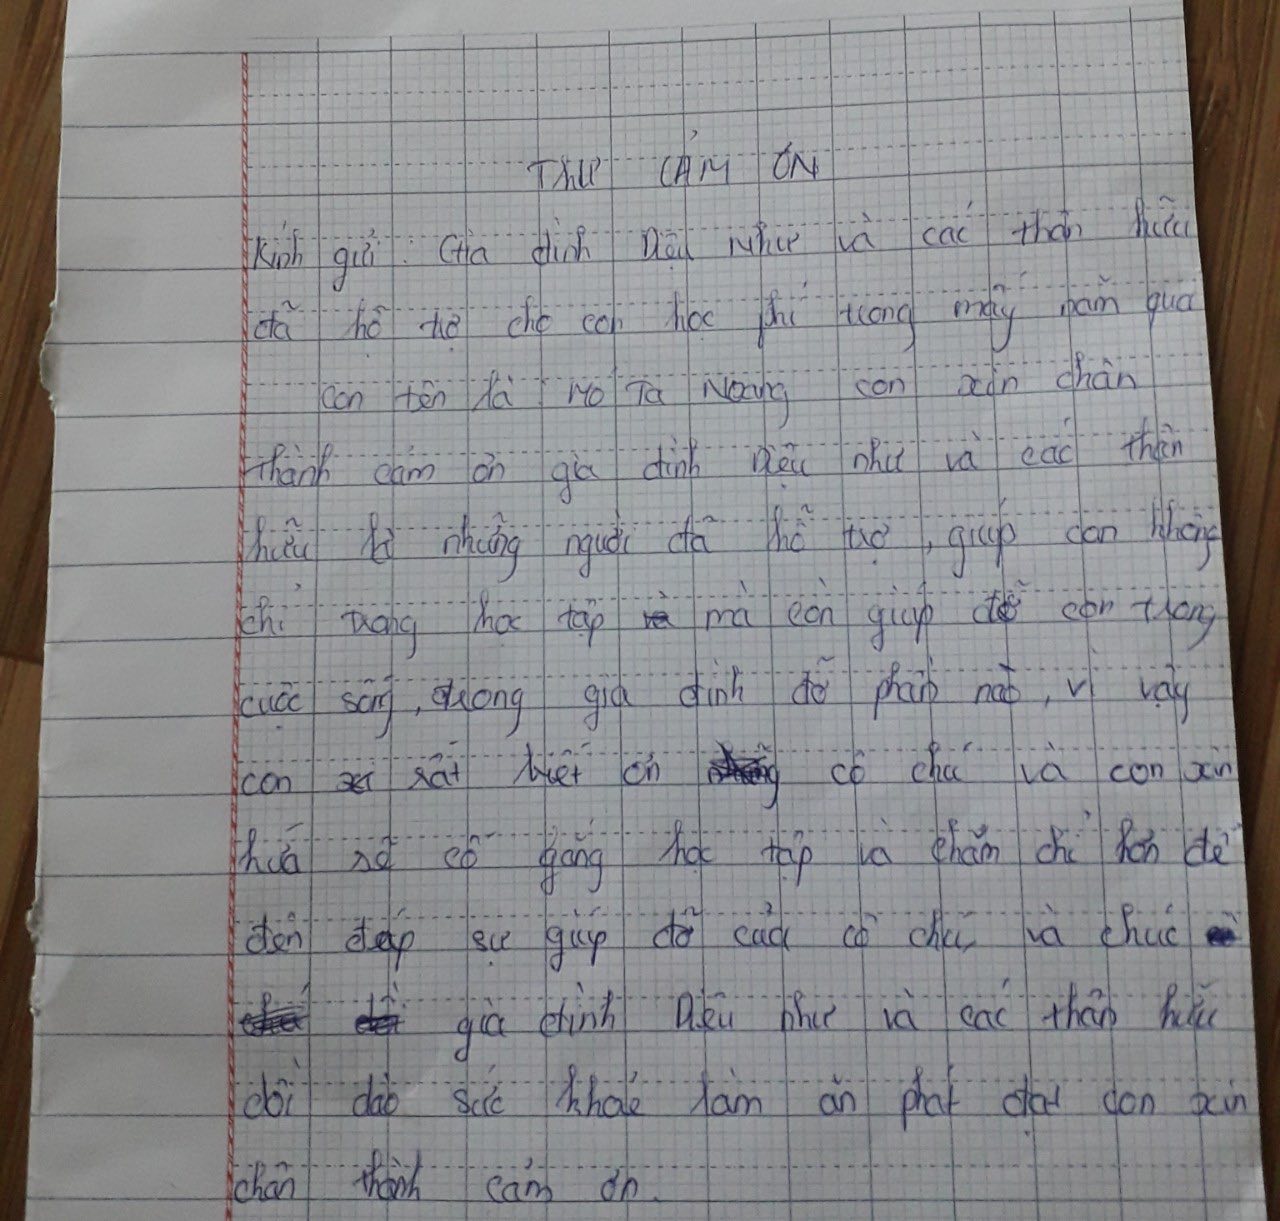 THƯ CẢM ƠN
Kính gửi : Gia đình Diệu Như và các thân hữu
đã hỗ trợ cho con học phí trong mấy năm qua
con tên là : Mo Ta Noang con xin chân
thành cám ơn gia đình Diệu như và các thân
hữu là những người đã hỗ trợ, giúp con không
chỉ trong học tập mà còn giúp đỡ con trong
cuộc sống, trong gia đình đỡ phần nào, vì vậy
con rất biết ơn cô chú và con xin
hứa sẽ cố gắng học tập và chăm chỉ hơn để
đền đáp sự giúp đỡ của cô chú và chúc
gia đình Diệu như và các thân hữu
dồi dào sức khoẻ làm ăn phát đạt con xin
chân thành cảm ơn.